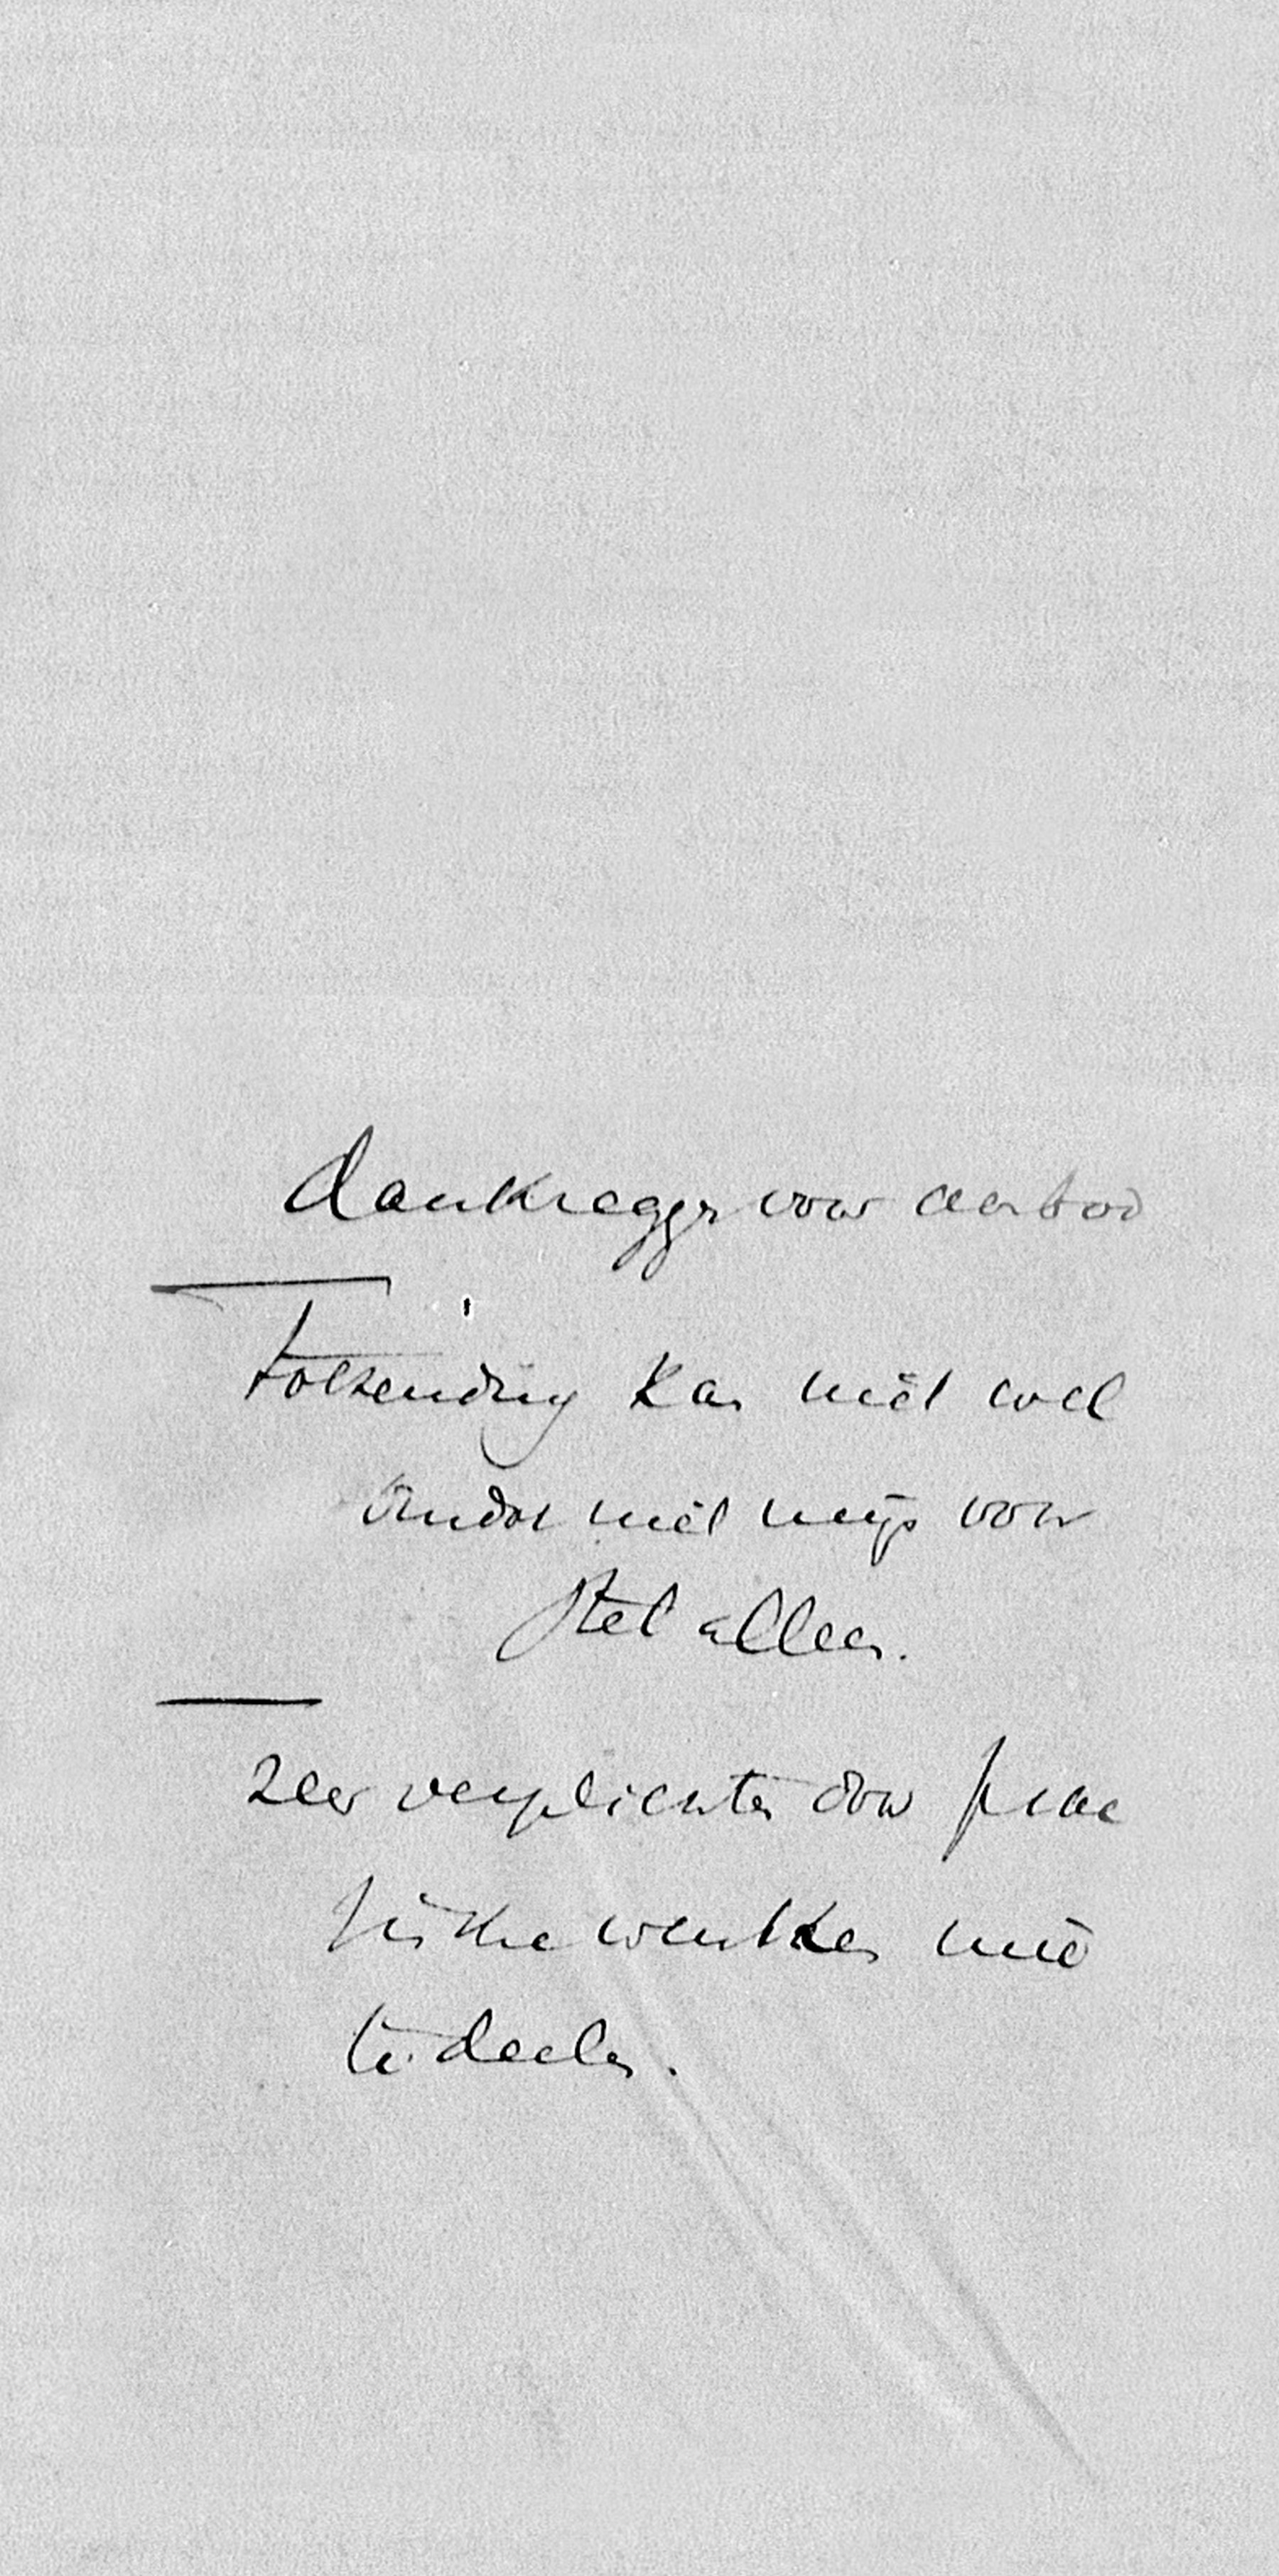 dankzeggen voor aanbod
Toezending kan niet wel
omdat niet mijn voor
stel alleen.
Zeer verplichten door prac
tische wenken mede
te deelen.